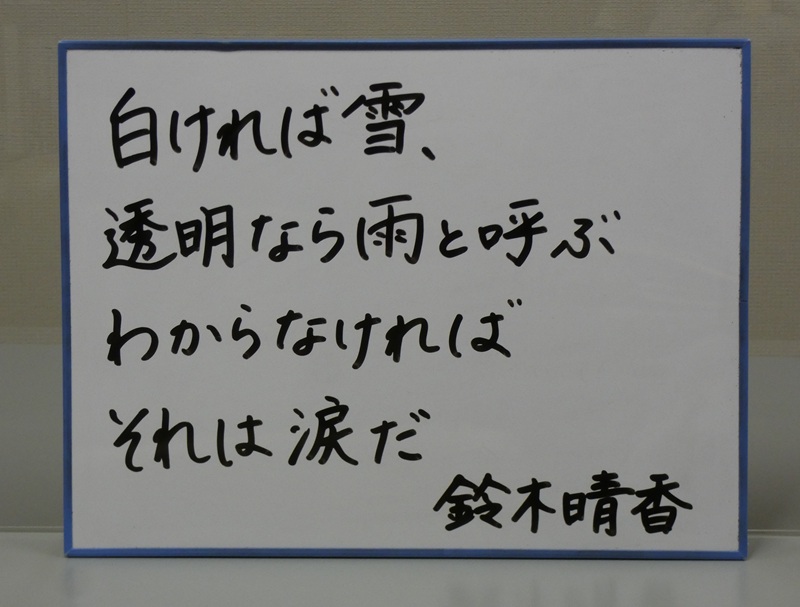 白ければ雪、
透明なら雨と呼ぶ
わからなければ
それは涙だ
鈴木晴香